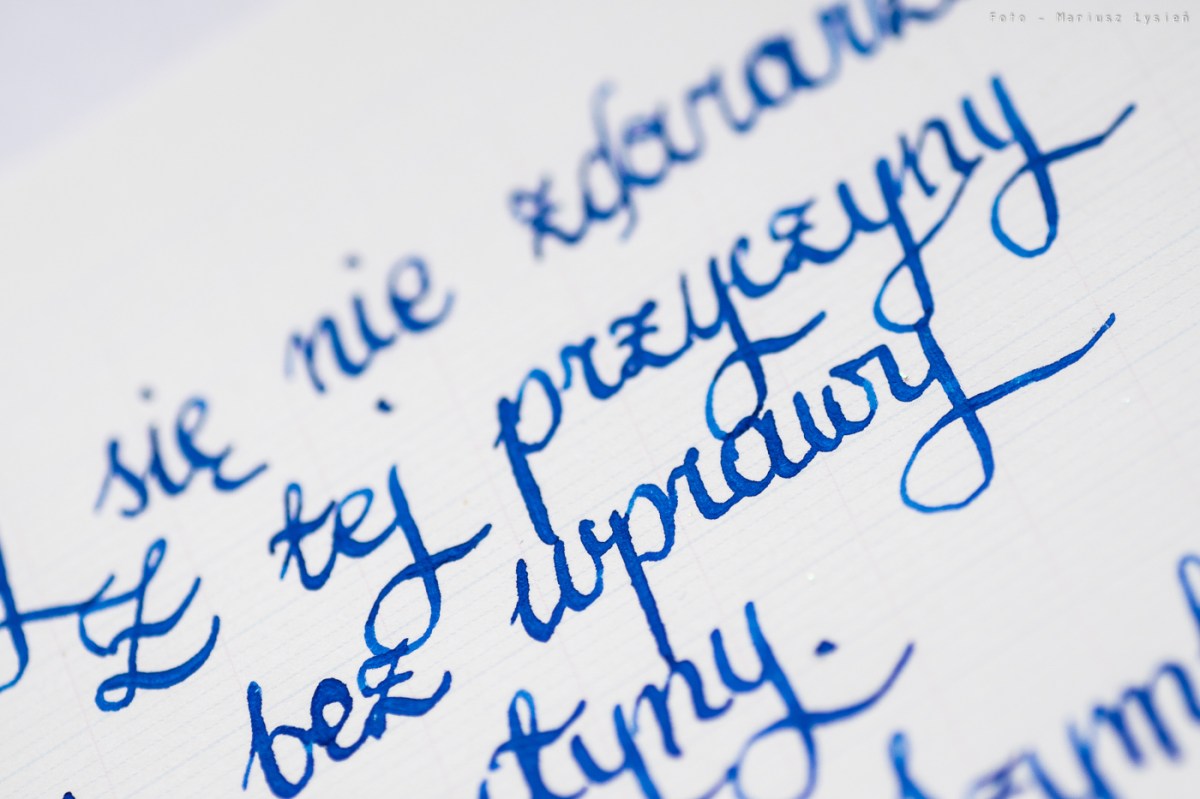 Foto - Mariusz Łysień
się nie
Z tej przyczyny
bez wprawy
tyny.